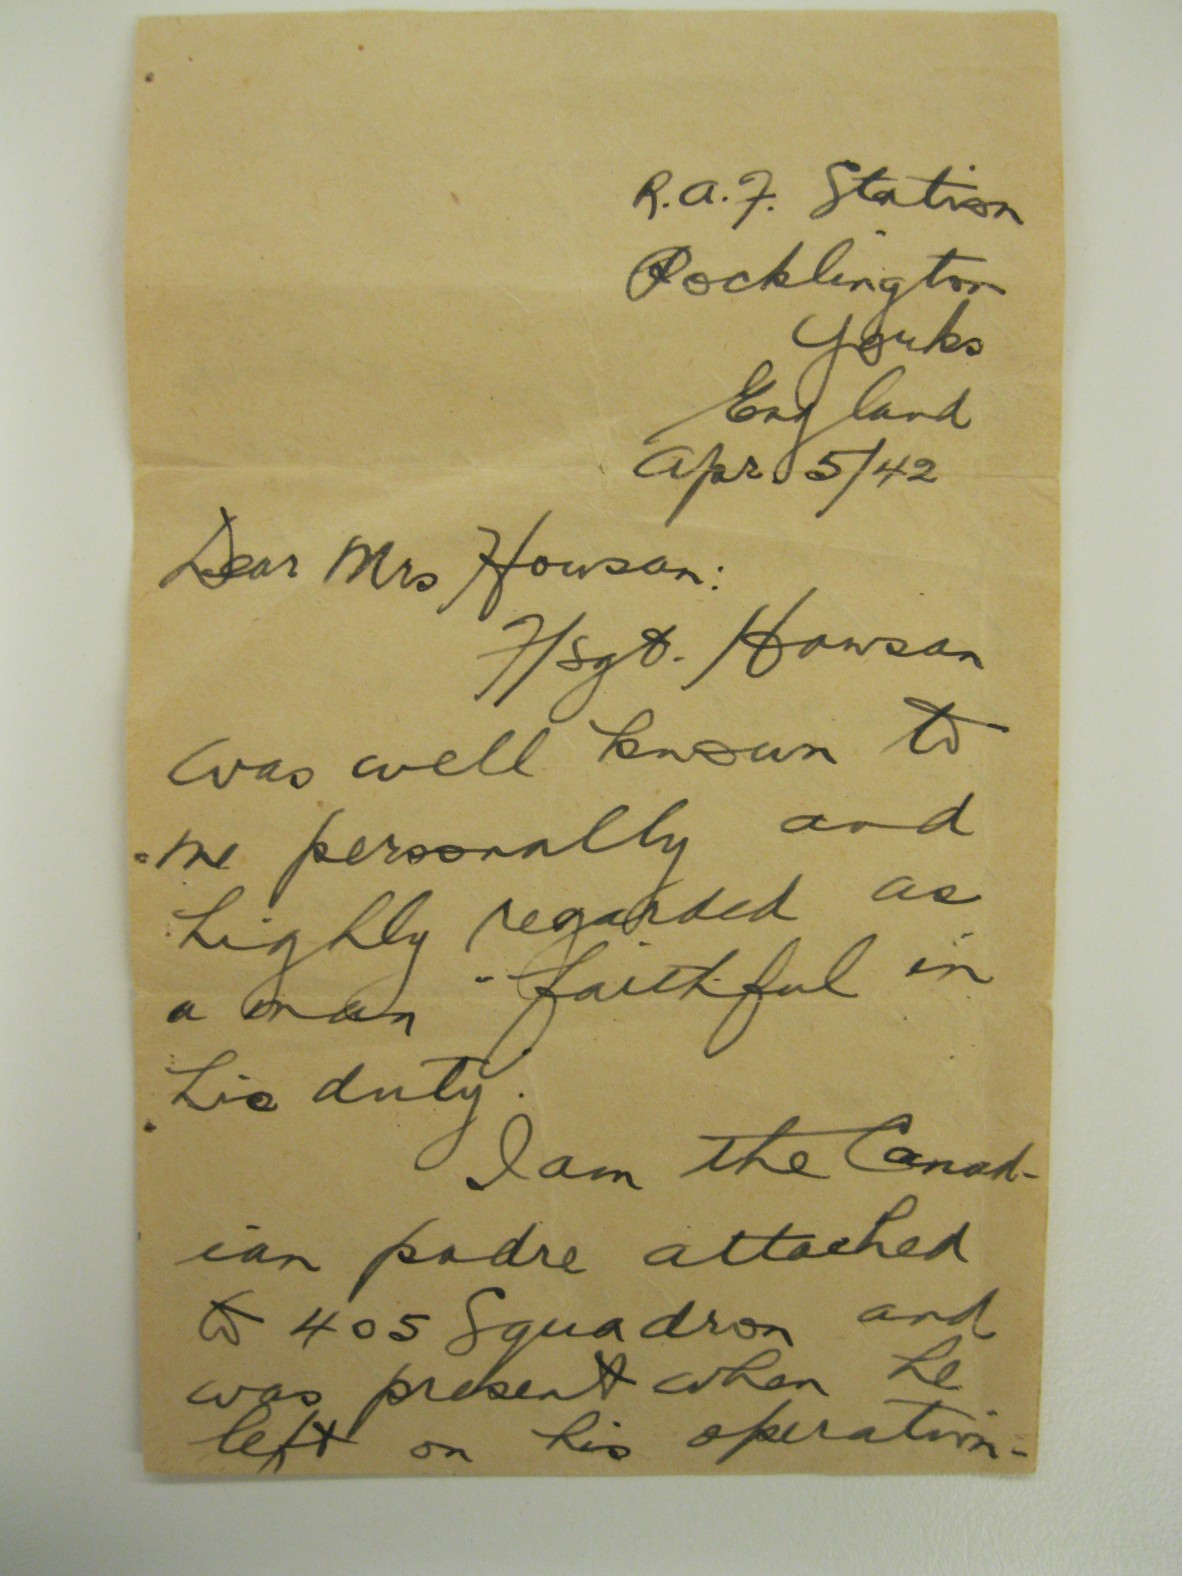 R.A.F. Station
Pocklington
Yorks
England
Apr. 5/42
Dear Mrs Howson:
F/Sgt. Howson
was well known to
me personally and
highly regarded as
a man faithful in
his duty.
I am the Canad-
ian padre attached
to 405 Squadron and
was present when he
left on his operation-